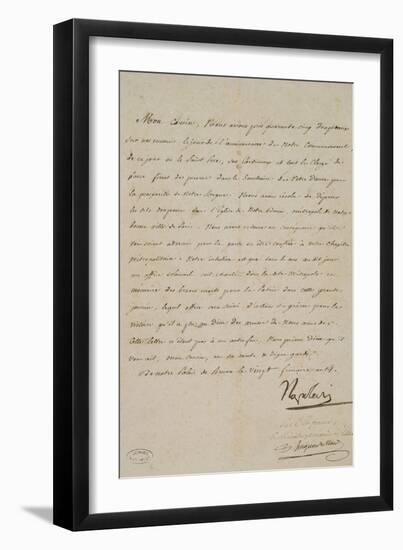 Mon Cousin, Nous avons pris quarante cinq Drapeaux
sur nos ennemis le jour de l'anniversaire de Notre Couronnement,
de ce jour où le Saint Père, ses Cardinaux et tout le Clergé de
france firent des prieres dans le Sanctuaire de Notre Dame pour
la prospérité de Notre Regne. Nous avons résolu de déposer
les dits drapeaux dans l'Eglise de Notre Dame, métropole de notre
bonne ville de Paris. Nous avons ordonné en conséquence qu'ils
vous soient adressés pour la garde en être confiée à votre Chapitre
métropolitain. Notre intention est que tous les ans au dit jour
un office solennel soit chanté dans la dite métropole en
mémoire des braves morts pour la Patrie dans cette grande
journée, lequel office sera suivi d'actions de grâces pour la
victoire qu'il a plu au Dieu des armées de Nous
Cette lettre n'étant pas à une autre fin, Nous prions Dieu qu'il
vous ait, mon Cousin, en sa sainte et digne garde.
De notre Palais de Brunn le vingt frimaire an 14.
Napoleon